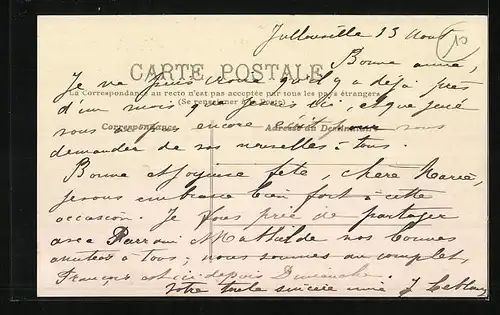 Jullouville 13 Août
10
Bonne amie,
CARTE POSTALE
Je ne puis croire qu'il y a déjà près
La Correspondance au recto n'est pas acceptée par tous les pays étrangers
d'un mois que je suis ici, et que je ne
(Se renseigner à la Poste)
vous ai pas encore écrit pour vous
Correspondance
Adresse du Destinataire
demander de vos nouvelles à tous.
Bonne et Joyeuse fête, chère Marie,
je vous embrasse bien fort à cette
occasion. Je vous prie de partager
avec Mathilde nos bonnes
amitiés à tous; nous sommes au complet,
François est ici depuis Dimanche.
Votre toute sincère amie J